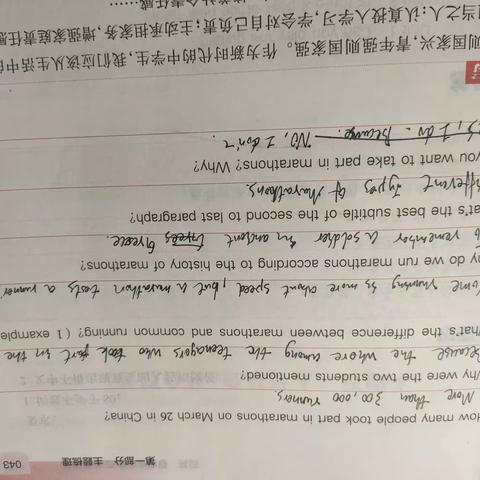 第一部分 主题梳理 043
How many people took part in marathons on March 26 in China?
More than 300,000 runners.
Why were the two students mentioned?
Because the whore among the teenagers who took part in the
What's the difference between marathons and common running? (1 example
ome running is more about speed, but a marathon tests a runner
hy do we run marathons according to the history of marathons?
o remember a soldier in ancient Greece.
at's the best subtitle of the second to last paragraph?
ifferent types of marathons.
you want to take part in marathons? Why?
s, I do. Because. No, I don't.
则国家兴,青年强则国家强。作为新时代的中学生,我们应从该生活中的
当之人:认真投入学习,学会对自己负责;主动承担家务,增强家庭责任感